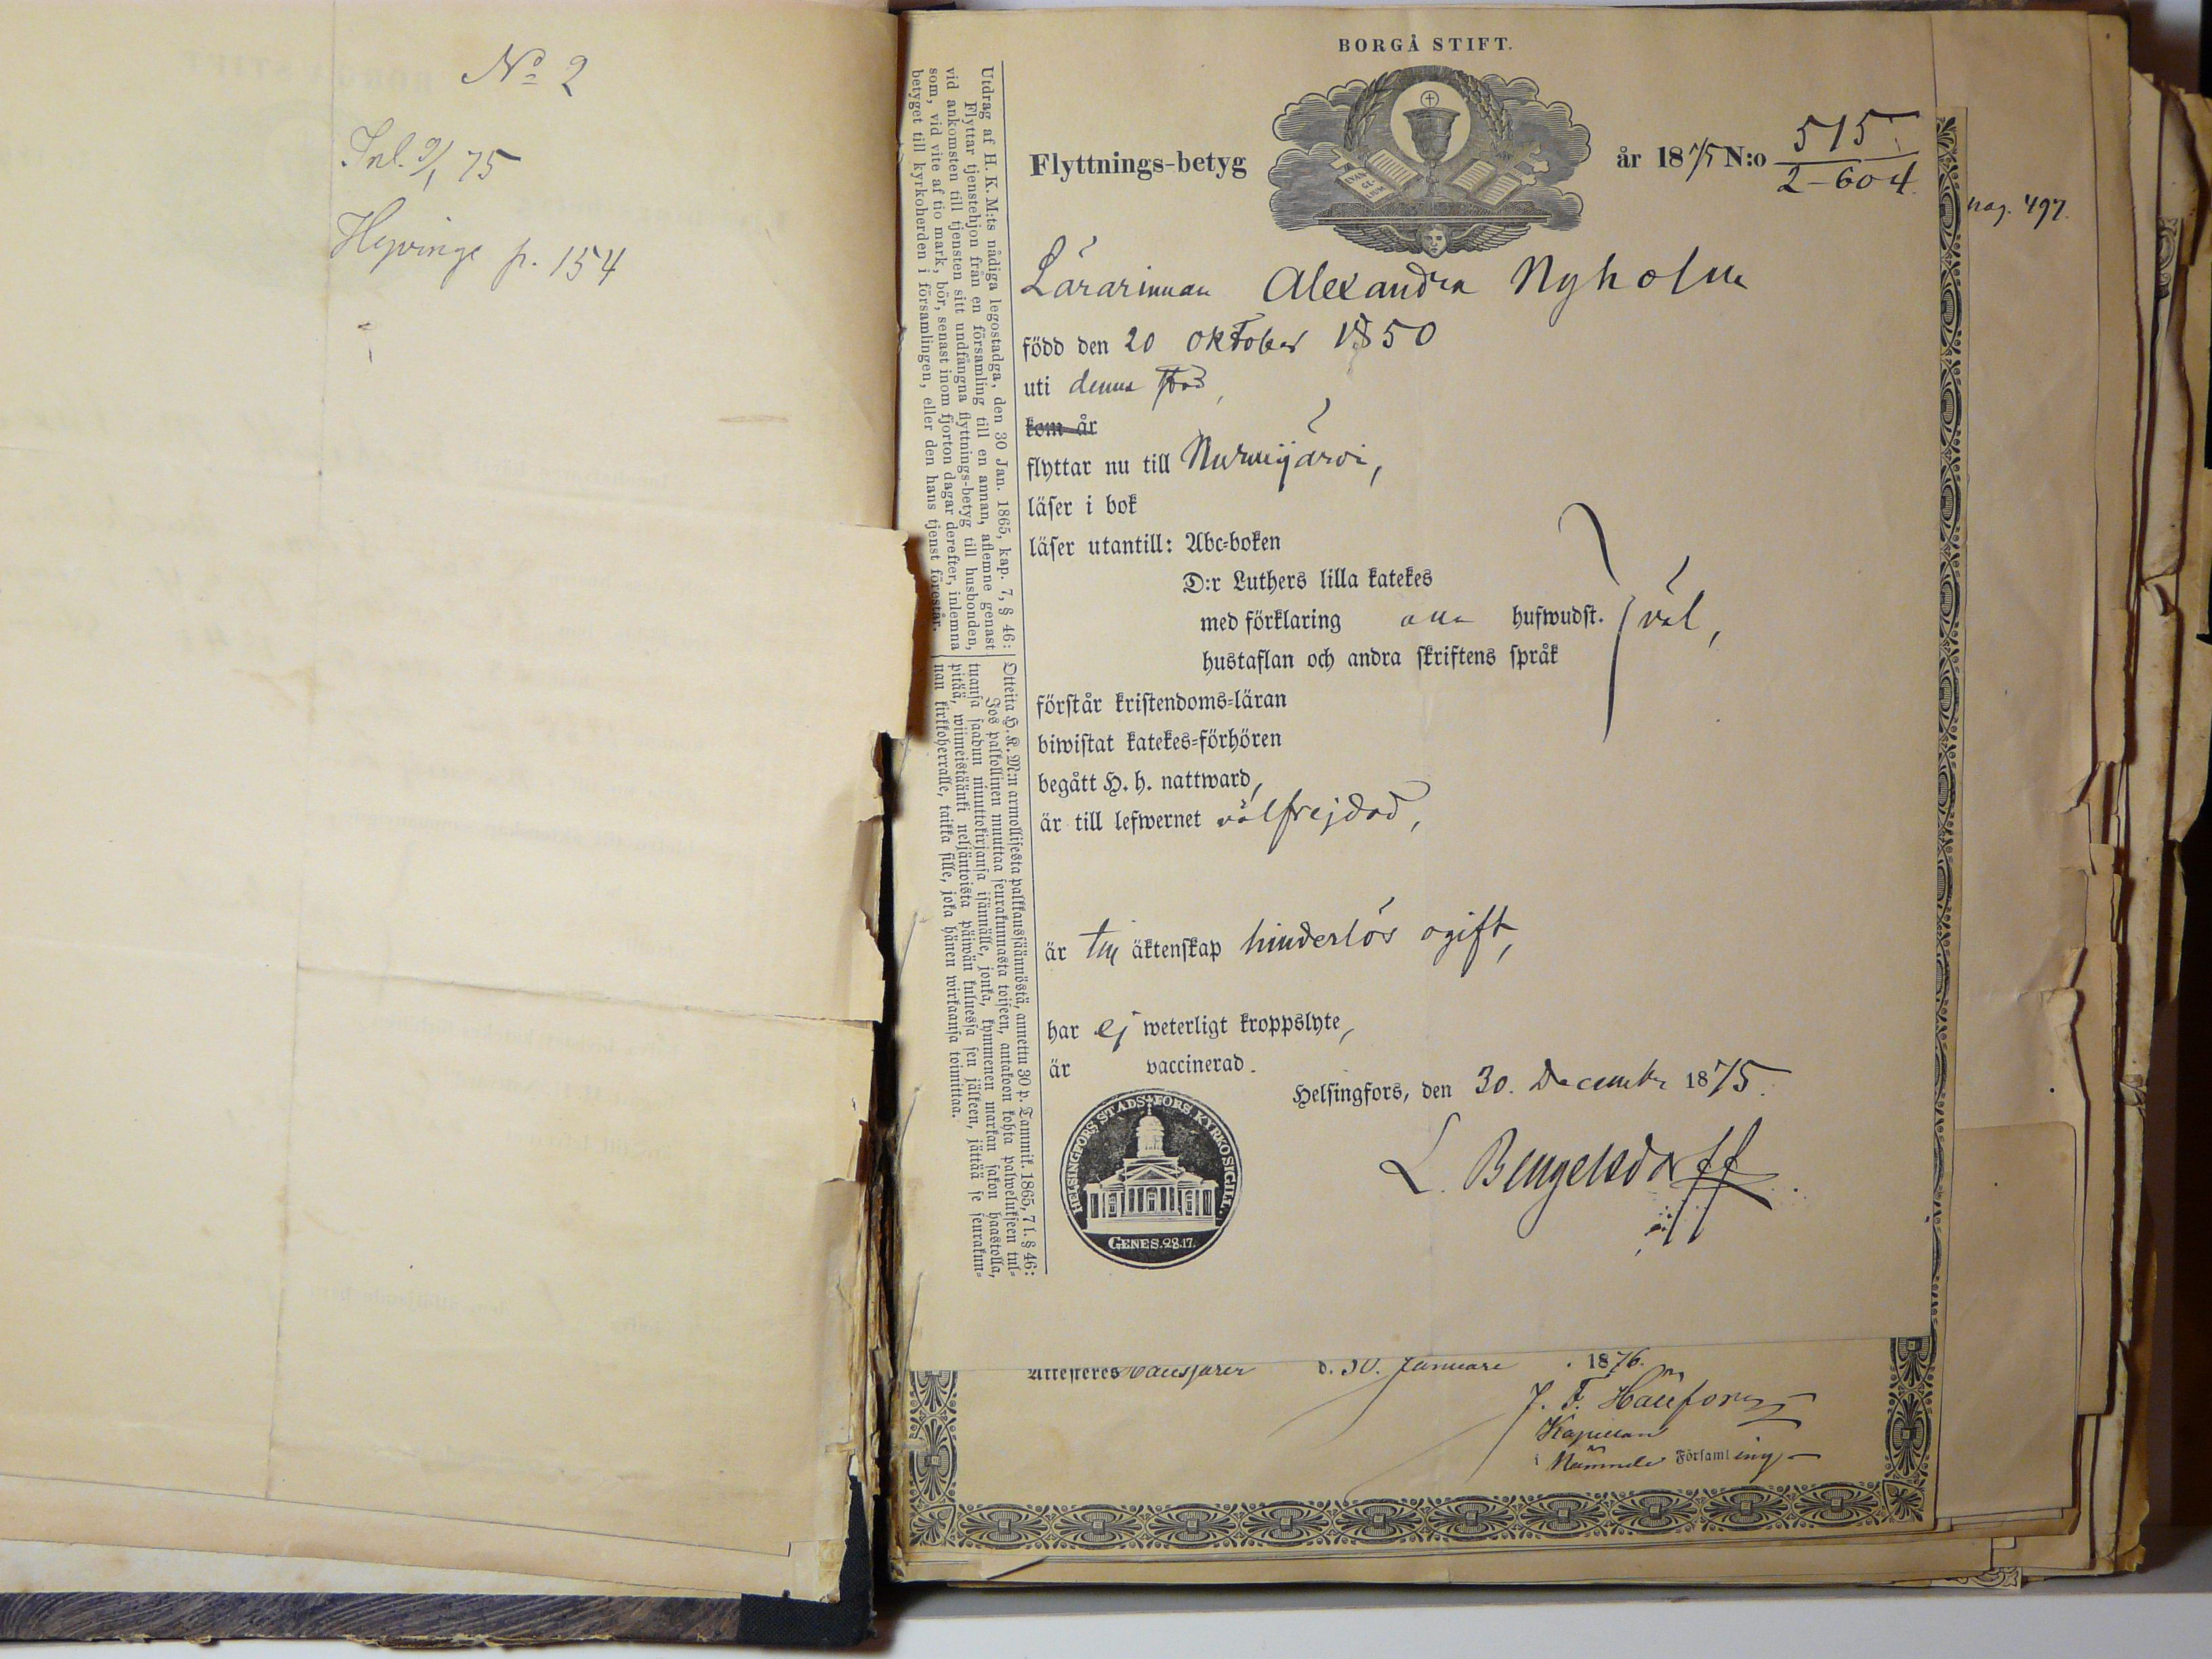 No 2
Inl. 9/1 75
Hyvinge p. 154
BORGÅ STIFT.
Flyttnings-betyg
EVAN GE LIUM
år 1875 N:o 515
2-604
pag. 497.
Lärarinnan Alexandra Nyholm
född den 20 oktober 1850
uti denna stad,
kom år
flyttar nu till Nurmijärvi,
läser i bok
läser utantill: Abc-boken
D:r Luthers lilla katekes
med förklaring alla hufwudst. väl,
hustaflan och andra skriftens språk
förstår kristendoms-läran
biwistat katekes-förhören
begått H. h. nattward,
är till lefwernet välfrejdad,
är till äktenskap hinderlös ogift,
har ej weterligt kroppslyte,
är vaccinerad.
Helsingfors, den 30. December 1875.
L. Bengelsdorff
HELSINGFORS STADS FÖRS. KYRKOSIGILL.
GENES. 28.17.
Utdrag af H. K. M:ts nådiga legostadga, den 30 Jan. 1865, kap. 7, § 46:
Flyttar tjenstehjon från en församling till en annan, aflemne genast
vid ankomsten till tjensten sitt undfångna flyttnings-betyg till husbonden,
som, vid vite af tio mark, bör, senast inom fjorton dagar derefter, inlemna
betyget till kyrkoherden i församlingen, eller den hans tjenst förestår.
Otteita H. K. M:n armollisesta palkkaussäännöstä, annettu 30 p. Tammik. 1865, 7 l. § 46:
Jos palkollinen muuttaa seurakunnasta toiseen, antakoon kohta palwelukseen tul-
tuansa saadun muuttokirjansa isännälle, jonka, kymmenen markan sakon haastolla,
pitää, wiimeistäänki neljäntoista päiwän kuluessa sen jälkeen, jättää se seurakun-
nan kirkkoherralle, taikka sille, joka hänen wirkaansa toimittaa.
Attesteres Hausjärvi d. 30. Januari 1876.
J. F. Häufors
Kapellan
i Nämnde Församling